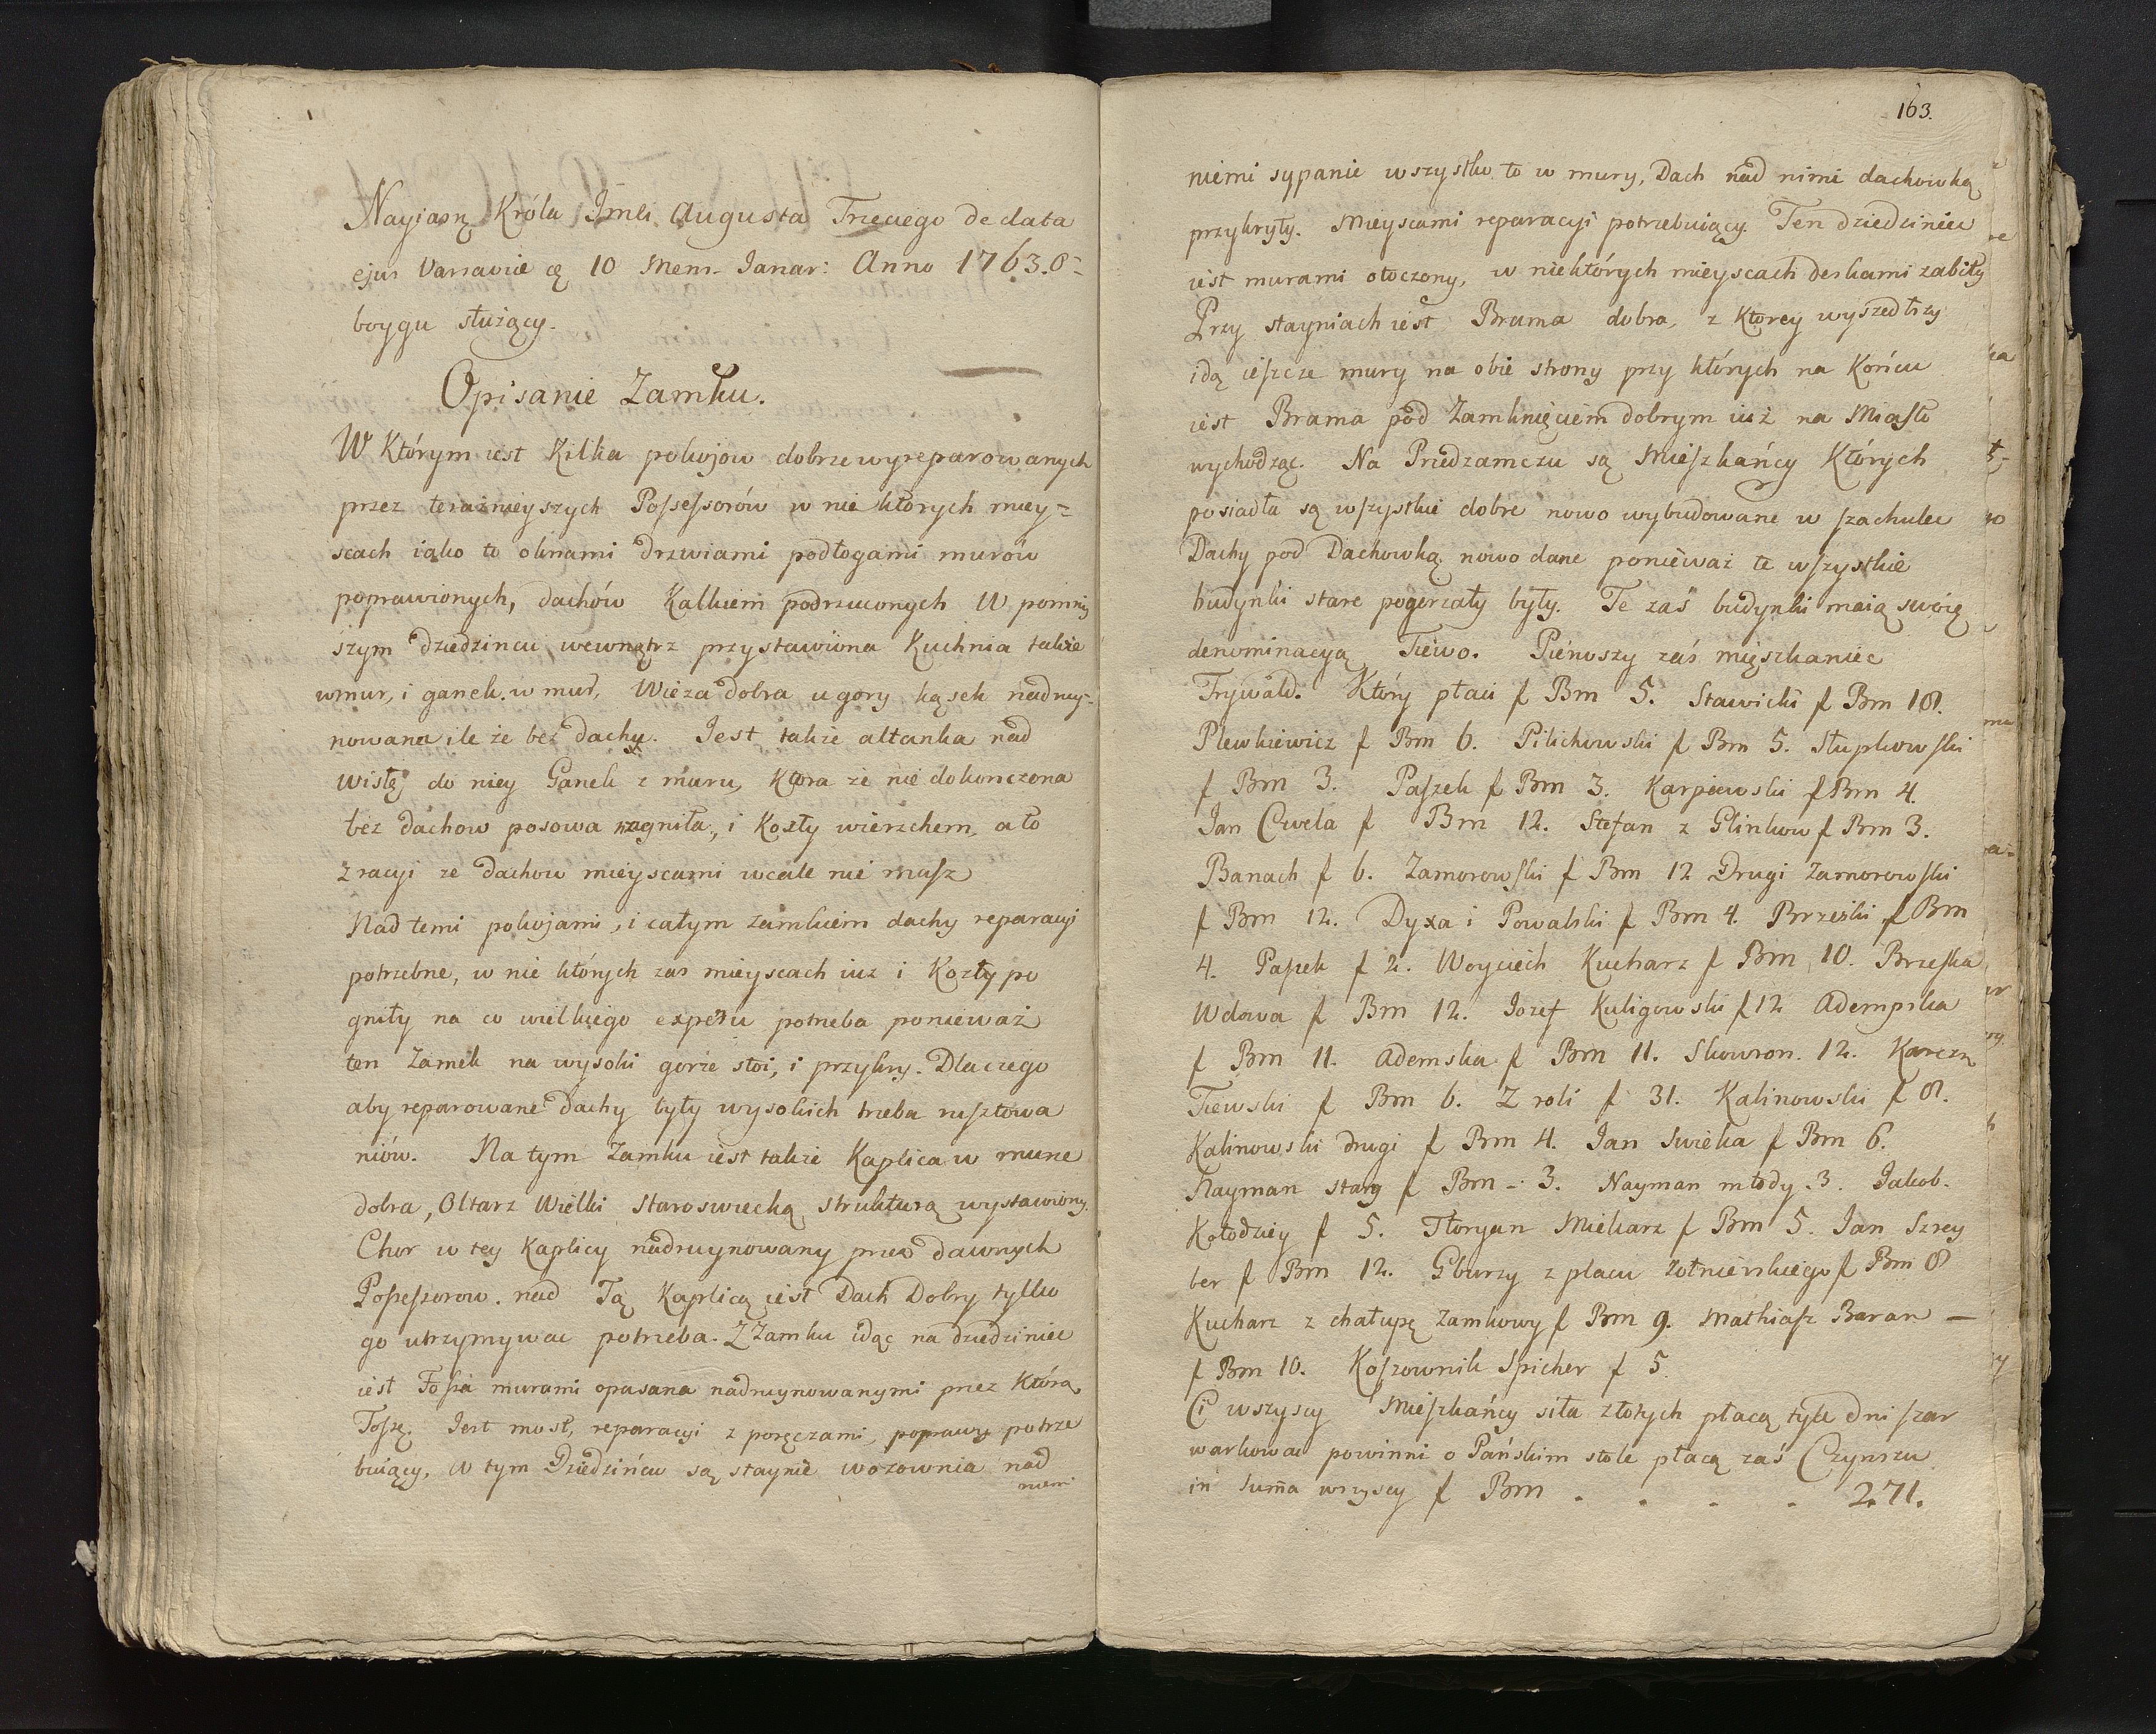 Nayjasņ Króla Jmći Augusta Trzeciego de data
ejus Varsavie 10 Mens. Ianar: Anno 1763. O-
boygu służący.
Opisanie Zamku.
W Którym iest Kilka pokojow dobrze wyreparowanych
przez teraznieyszych Possessorów w nie których miey-
scach iako to oknami Drzwiami podłogami murów
poprawionych, dachów Kalkiem podrzuconych W pomniy
szym dziedzincu wewnątrz przystawiona Kuchnia takze
wmur, i ganek w mur, Wieza dobra u gory kąsek nadruy-
nowana ile że bez dachu. Iest takze altanka nad
Wisłą do niey Ganek z muru, Ktora ze nie dokonczona
bez dachow posowa zagniła, i Kozły wierzchem, a to
z racyi ze dachow mieyscami wcale nie masz
Nad temi pokojami, i całym zamkiem dachy reparacyi
potrzebne, w nie których zas mieyscach iuz i Kozły po
gniły na co wielkiego expensu potrzeba ponieważ
ten Zamek na wysoki gorze stoi, i przykry. Dlaczego
aby reparowane Dachy były wysokich trzeba rusztowa
niów. Na tym Zamku iest takze Kaplica w murze
dobra, Oltarz Wielki Staroswiecką strukturą wystawiony.
Chor w tey Kaplicy nadruynowany przez dawnych
Possessorow. nad Tą Kaplicą iest Dach Dobry tylko
go utrzymywac potrzeba. Z Zamku idąc na dziedziniec
iest Fossa murami opasana nadruynowanymi przez Którą
Fossę. Iest most, reparacyi z poręczami, poprawy potrze
buiący, W tym Dziedzińcu są staynie wozownia nad
niemi
163.
niemi sypanie wszystko to w mury, Dach nad nimi dachowką
przykryty. Mieyscami reparacyi potrzebuiący. Ten dziedziniec
iest murami otoczony, w niektórych mieyscach deskami zabity
Przy stayniach iest Brama dobra, z Ktorey wyszedłszy
idą ieszcze mury na obie strony przy których na Końcu
iest Brama pod Zamknięciem dobrym iuż na Miasto
wychodząc. Na Przedzamczu są Mieszkańcy Których
posiadła są wszystkie dobre nowo wybudowane w szachulec
Dachy pod Dachowką nowo dane ponieważ te wszystkie
budynki stare pogorzały były. Te zaś budynki maią swoię
denominacyą Tiewo. Pierwszy zaś mięszkaniec
Frywald. Który płaci f Bm 5. Stawicki f Bm 18.
Plewkiewicz f Bm 6. Pilichowski f Bm 5. Słupkowski
f Bm 3. Paszek f Bm 3. Karpiewski f Bm 4.
Jan Cwela f Bm 12. Stefan z Glinkow f Bm 3.
Banach f 6. Zamorowski f Bm 12 Drugi Zamorowski
f Bm 12. Dyxa i Powalski f Bm 4. Brzeski f Bm
4. Paszek f 2. Woyciech Kucharz f Bm 10. Brzeska
Wdowa f Bm 12. Iozef Kuligowski f 12 Adempska
f Bm 11. Ademska f Bm 11. Skowron. 12. Karczm
Tiewski f Bm 6. Z roli f 31. Kalinowski f 8.
Kalinowski drugi f Bm 4. Jan Swieka f Bm 6.
Nayman stary f Bm - 3. Nayman młody 3. Jakob
Kołodziey f 5. Floryan Mielcarz f Bm 5. Jan Szrey
ber f Bm 12. Gburzy z placu Zołnierskiego f Bm 8
Kucharz z chałupę Zamkowy f Bm 9. Mathiasz Baran —
f Bm 10. Koszownik Spicher f 5.
Ci wszyscy Mieszkańcy siła złotych płacą tyle dni szar
warkowac powinni o Pańskim stole płacą zaś Czynszu
in Summa wszyscy f Bm . . . . 271.